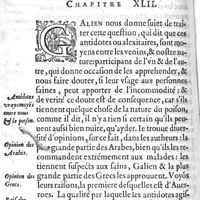 CHAPITRE XLII.
GALIEN nous donne suiet de trai-
ter cette question, qui dit que ces
antidotes ou alexitaires, sont mo-
yens entre les venins, & nostre na-
ture: participans de l'vn & de l'au-
tre, qui donne occasion de les apprehender, &
nous faire douter, si leur vsage aux personnes
saines, peut apporter de l'incommodité: &
de verité ce doute est de consequence, car s'ils
gardent quelque chose de la nature du poison,
comme il dit, il est bien certain qu'ils en peu-
uent aussi bien nuire, qu'ayder. Ie trouue diuer-
sité d'opinions, sur ce fait, dans les autheurs: la
plus grande partie des Arabes, bien qu'ils les re-
commandent extrémement aux malades: les
tiennent suspects aux sains, Galien & la plus
grande partie des Grecs les approuuent. Voyõs
leurs raisons, la premiere desquelles est d'Auer-
roes. La qualité par laquelle les antidotes agis-
Antidotes
vrays moyés
entre nous
& le poison.
Opinion des
Arabes.
Opinion des
Grecs.